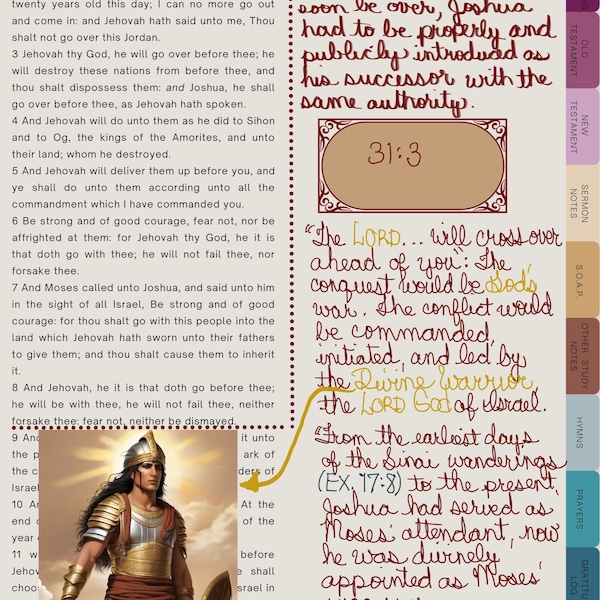 twenty years old this day; I can no more go out
and come in: and Jehovah hath said unto me, Thou
shalt not go over this Jordan.
3 Jehovah thy God, he will go over before thee; he
will destroy these nations from before thee, and
thou shalt dispossess them: and Joshua, he shall
go over before thee, as Jehovah hath spoken.
4 And Jehovah will do unto them as he did to Sihon
and to Og, the kings of the Amorites, and unto
their land; whom he destroyed.
5 And Jehovah will deliver them up before you, and
ye shall do unto them according unto all the
commandment which I have commanded you.
6 Be strong and of good courage, fear not, nor be
affrighted at them: for Jehovah thy God, he it is
that doth go with thee; he will not fail thee, nor
forsake thee.
7 And Moses called unto Joshua, and said unto him
in the sight of all Israel, Be strong and of good
courage: for thou shalt go with this people into the
land which Jehovah hath sworn unto their fathers
to give them; and thou shalt cause them to inherit
it.
8 And Jehovah, he it is that doth go before thee;
he will be with thee, he will not fail thee, neither
forsake thee: fear not, neither be dismayed.
9 And it unto
the p ark of
the c ders of
Israel
10 An At the
end of the
year
11 w before
Jehov e shall
choo srael in
soon be over, Joshua
had to be properly and
publicly introduced as
his successor with the
same authority.
31:3
"The LORD... will cross over
ahead of you": The
conquest would be God's
war. The conflict would
be commanded,
initiated, and led by
the Divine Warrior
the LORD God of Israel.
"From the earliest days
of the Sinai wanderings
(EX. 17:8) to the present,
Joshua had served as
Moses' attendant, now
he was divinely
appointed as Moses'
OLD
TESTAMENT
NEW
TESTAMENT
SERMON
NOTES
S.O.A.P.
OTHER STUDY
NOTES
HYMNS
PRAYERS
GRATITU
LOG